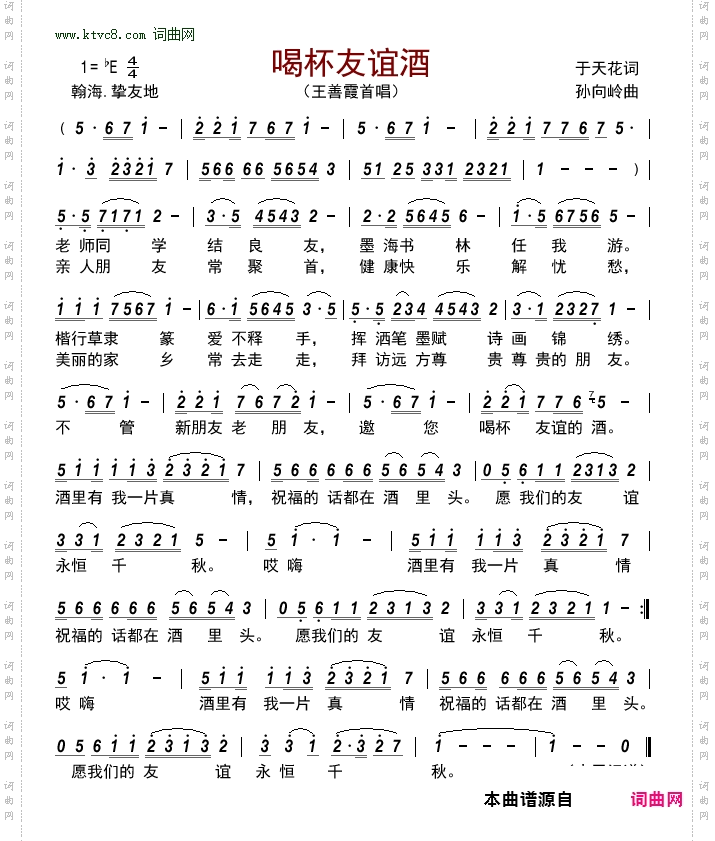 www.ktvc8.com 词曲网
喝杯友谊酒
1=♭E 4/4
于天花词
翰海.挚友地
（王善霞首唱）
孙向岭曲
( 5·671- | 221 7671- | 5·671- | 221 77675· |
1·3 23217 | 566 66 56543 | 51 25 331 2321 | 1 - - ) |
5·5 7171 2- | 3·5 4543 2- | 2·2 5645 6- | 1·5 6756 5- |
老 师同 学 结 良 友， 墨 海书 林 任 我 游。
亲 人朋 友 常 聚 首， 健 康快 乐 解 忧 愁，
111 7567 1- | 6·1 5645 3·5 | 5·5 234 4543 2 | 3·1 2327 1- |
楷行草隶 篆 爱 不释 手， 挥 洒笔 墨赋 诗 画 锦 绣。
美丽的家 乡 常 去走 走， 拜 访远 方尊 贵 尊 贵的 朋 友。
5·671- | 221 7672 1- | 5·671- | 221 776 5- |
不 管 新朋友 老 朋 友， 邀 您 喝杯 友谊的 酒。
511 113 2321 7 | 566 666 56 54 3 | 05611 2313 2 |
酒里有 我一片真 情， 祝福的 话都在 酒 里 头。 愿 我们的友 谊
331 2321 5- | 5 1·1- | 511 113 2321 7 |
永恒 千 秋。 哎 嗨 酒里有 我一片 真 情
566 666 56 54 3 | 05611 2313 2 | 331 2321 1- :|
祝福的 话都在 酒 里 头。 愿我们的 友 谊 永恒 千 秋。
5 1·1- | 511 113 2321 7 | 566 666 56 54 3 |
哎 嗨 酒里有 我一片 真 情 祝福的 话都在 酒 里 头。
05611 2313 2 | 33 1 2·327 | 1 - - - | 1 - - 0 |
愿我们的 友 谊 永 恒 千 秋。
本曲谱源自 词曲网
词曲网